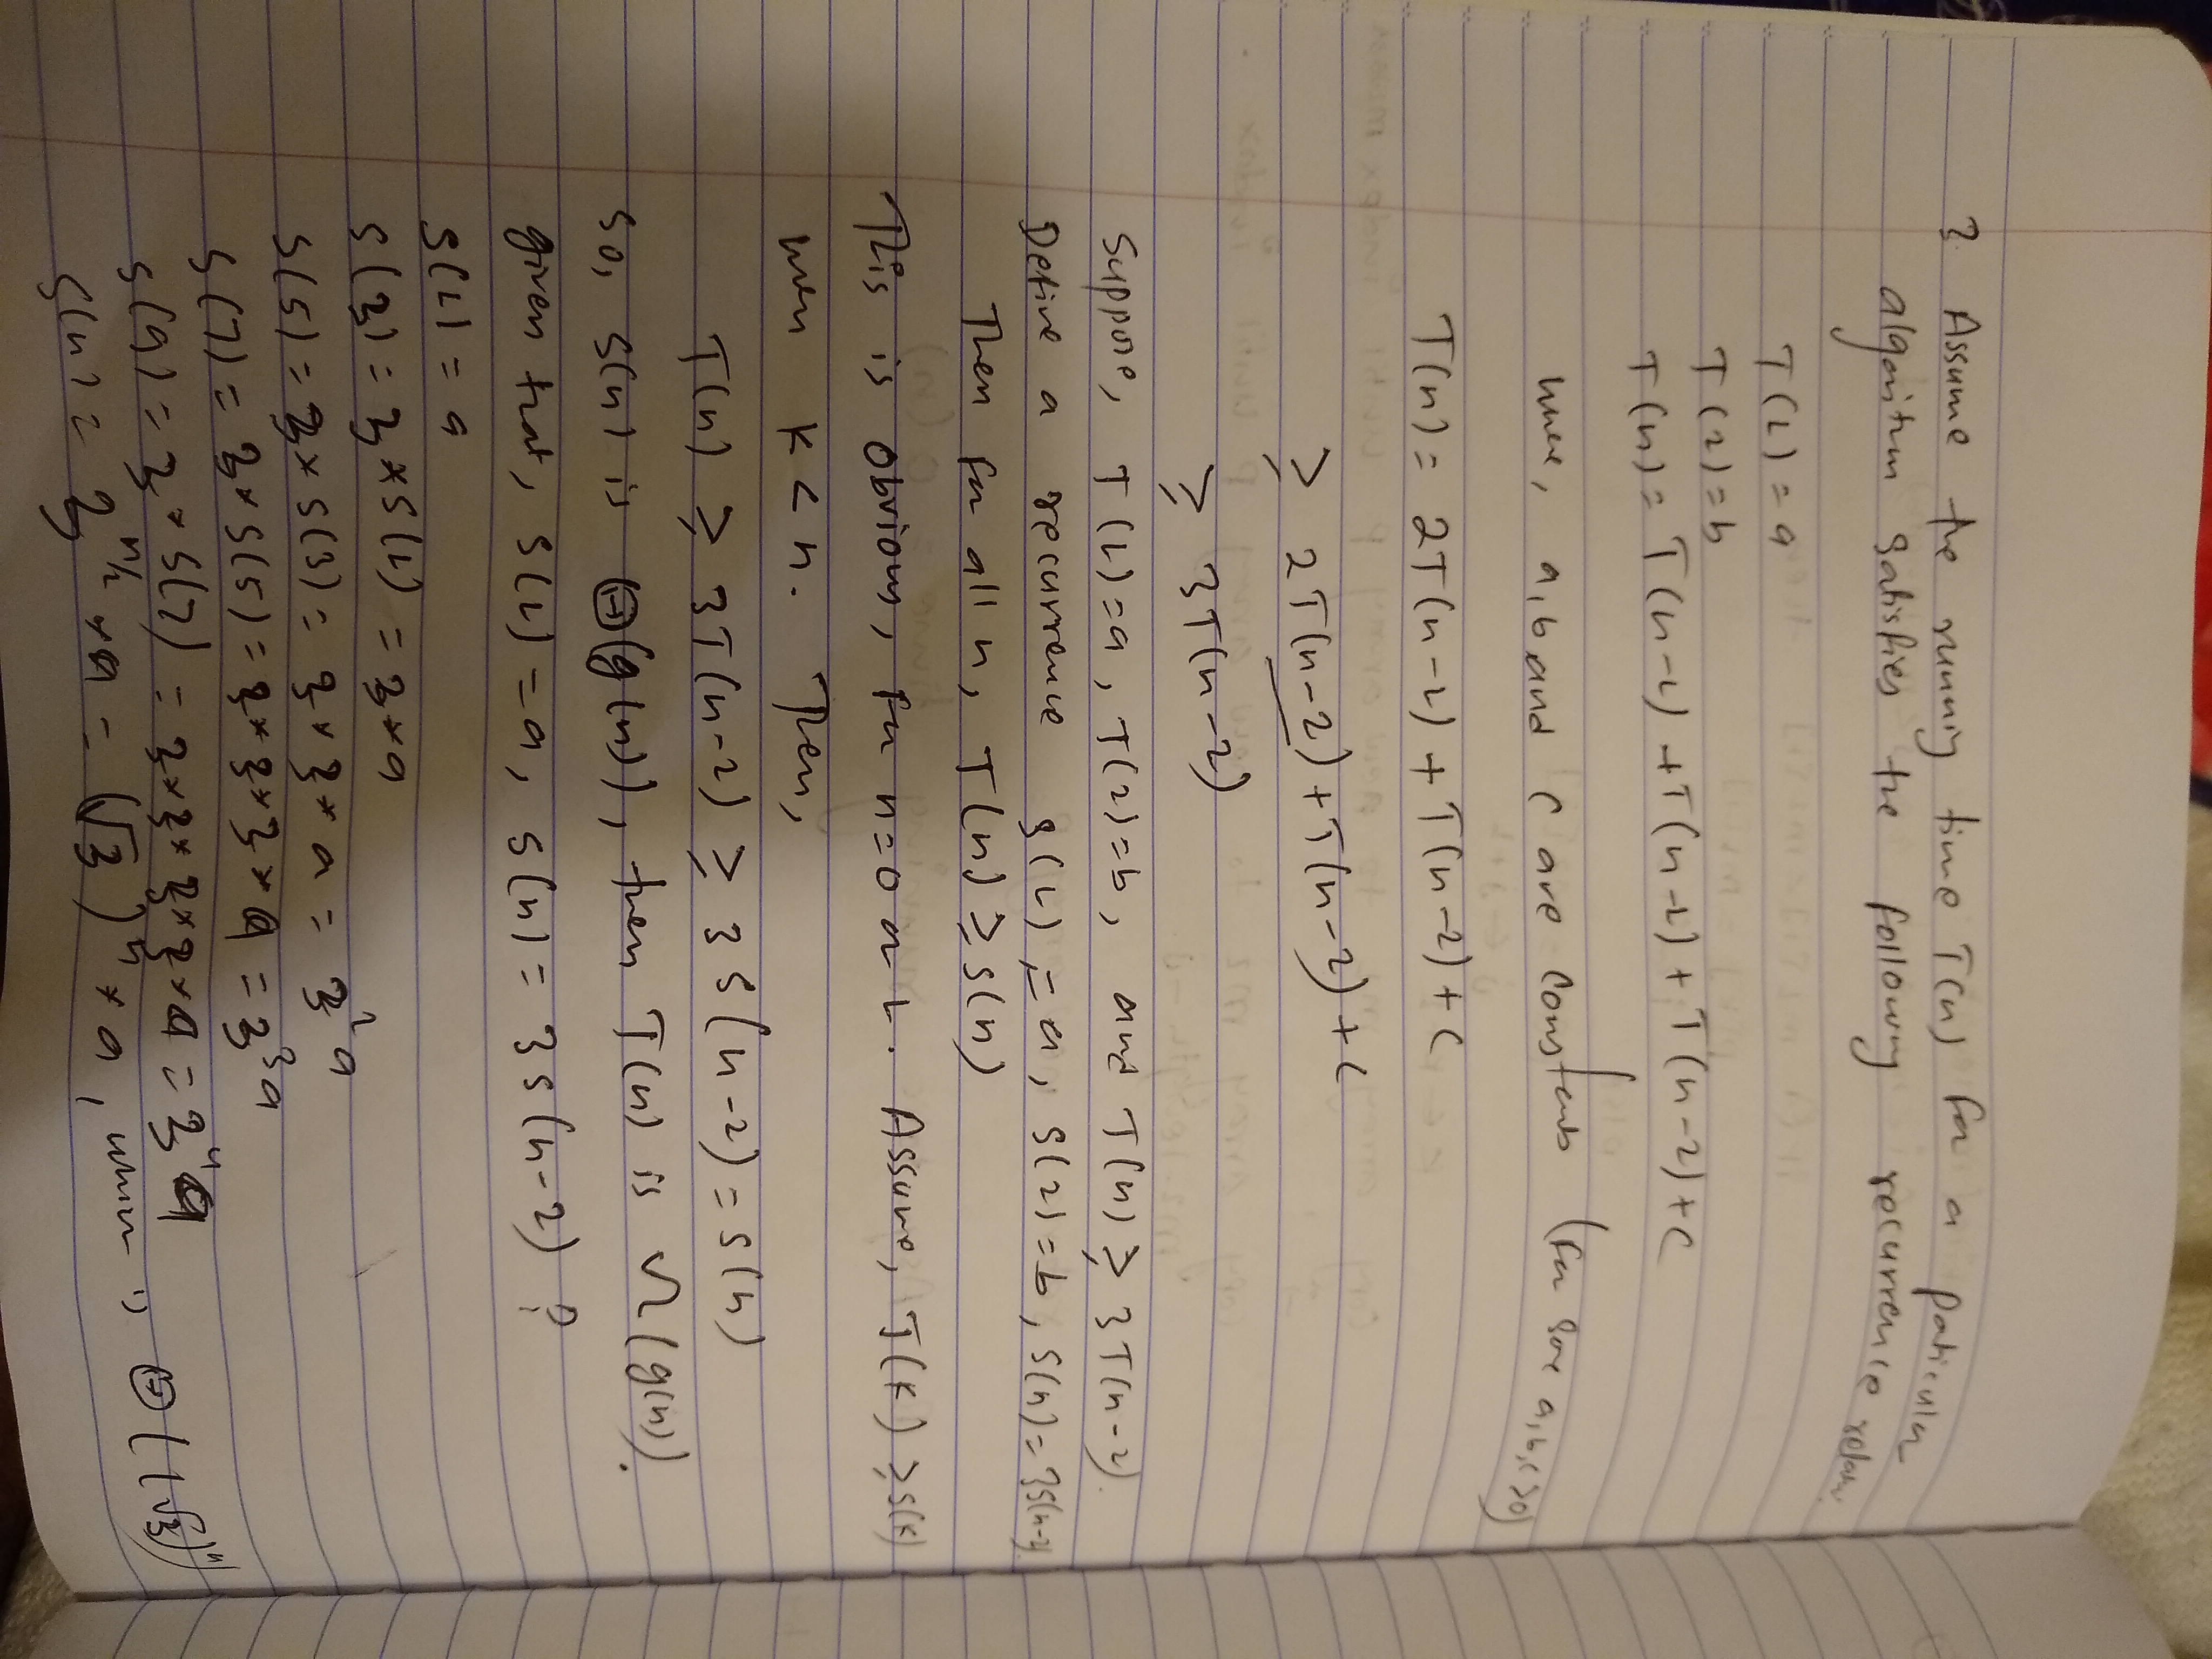 3. Assume the running time T(n) for a paticular
algorithm satisfies the following recurrence relation.
T(1) = a
T(2) = b
T(n) = T(n-1) + T(n-1) + T(n-2) + c
where, a, b and c are constants (for some a, b, c > 0)
T(n) = 2T(n-1) + T(n-2) + c
≥ 2T(n-2) + T(n-2) + c
≥ 3T(n-2)
Suppose, T(1) = a, T(2) = b, and T(n) ≥ 3T(n-2).
Define a recurrence S(1) = a, S(2) = b, S(n) = 3S(n-2)
Then for all n, T(n) ≥ S(n)
This is obvious, for n=0 or 1. Assume, T(k) ≥ S(k)
when k < n. Then,
T(n) ≥ 3T(n-2) ≥ 3S(n-2) = S(n)
So, S(n) is Θ(g(n)), then T(n) is Ω(g(n)).
given that, S(1) = a, S(n) = 3S(n-2) ?
S(1) = a
S(3) = 3*S(1) = 3*a
S(5) = 3*S(3) = 3*3*a = 3²a
S(7) = 3*S(5) = 3*3*3*a = 3³a
S(9) = 3*S(7) = 3*3*3*3*a = 3⁴a
S(n) = 3^(n/2) * a = (√3)^n * a, which is Θ((√3)^n)